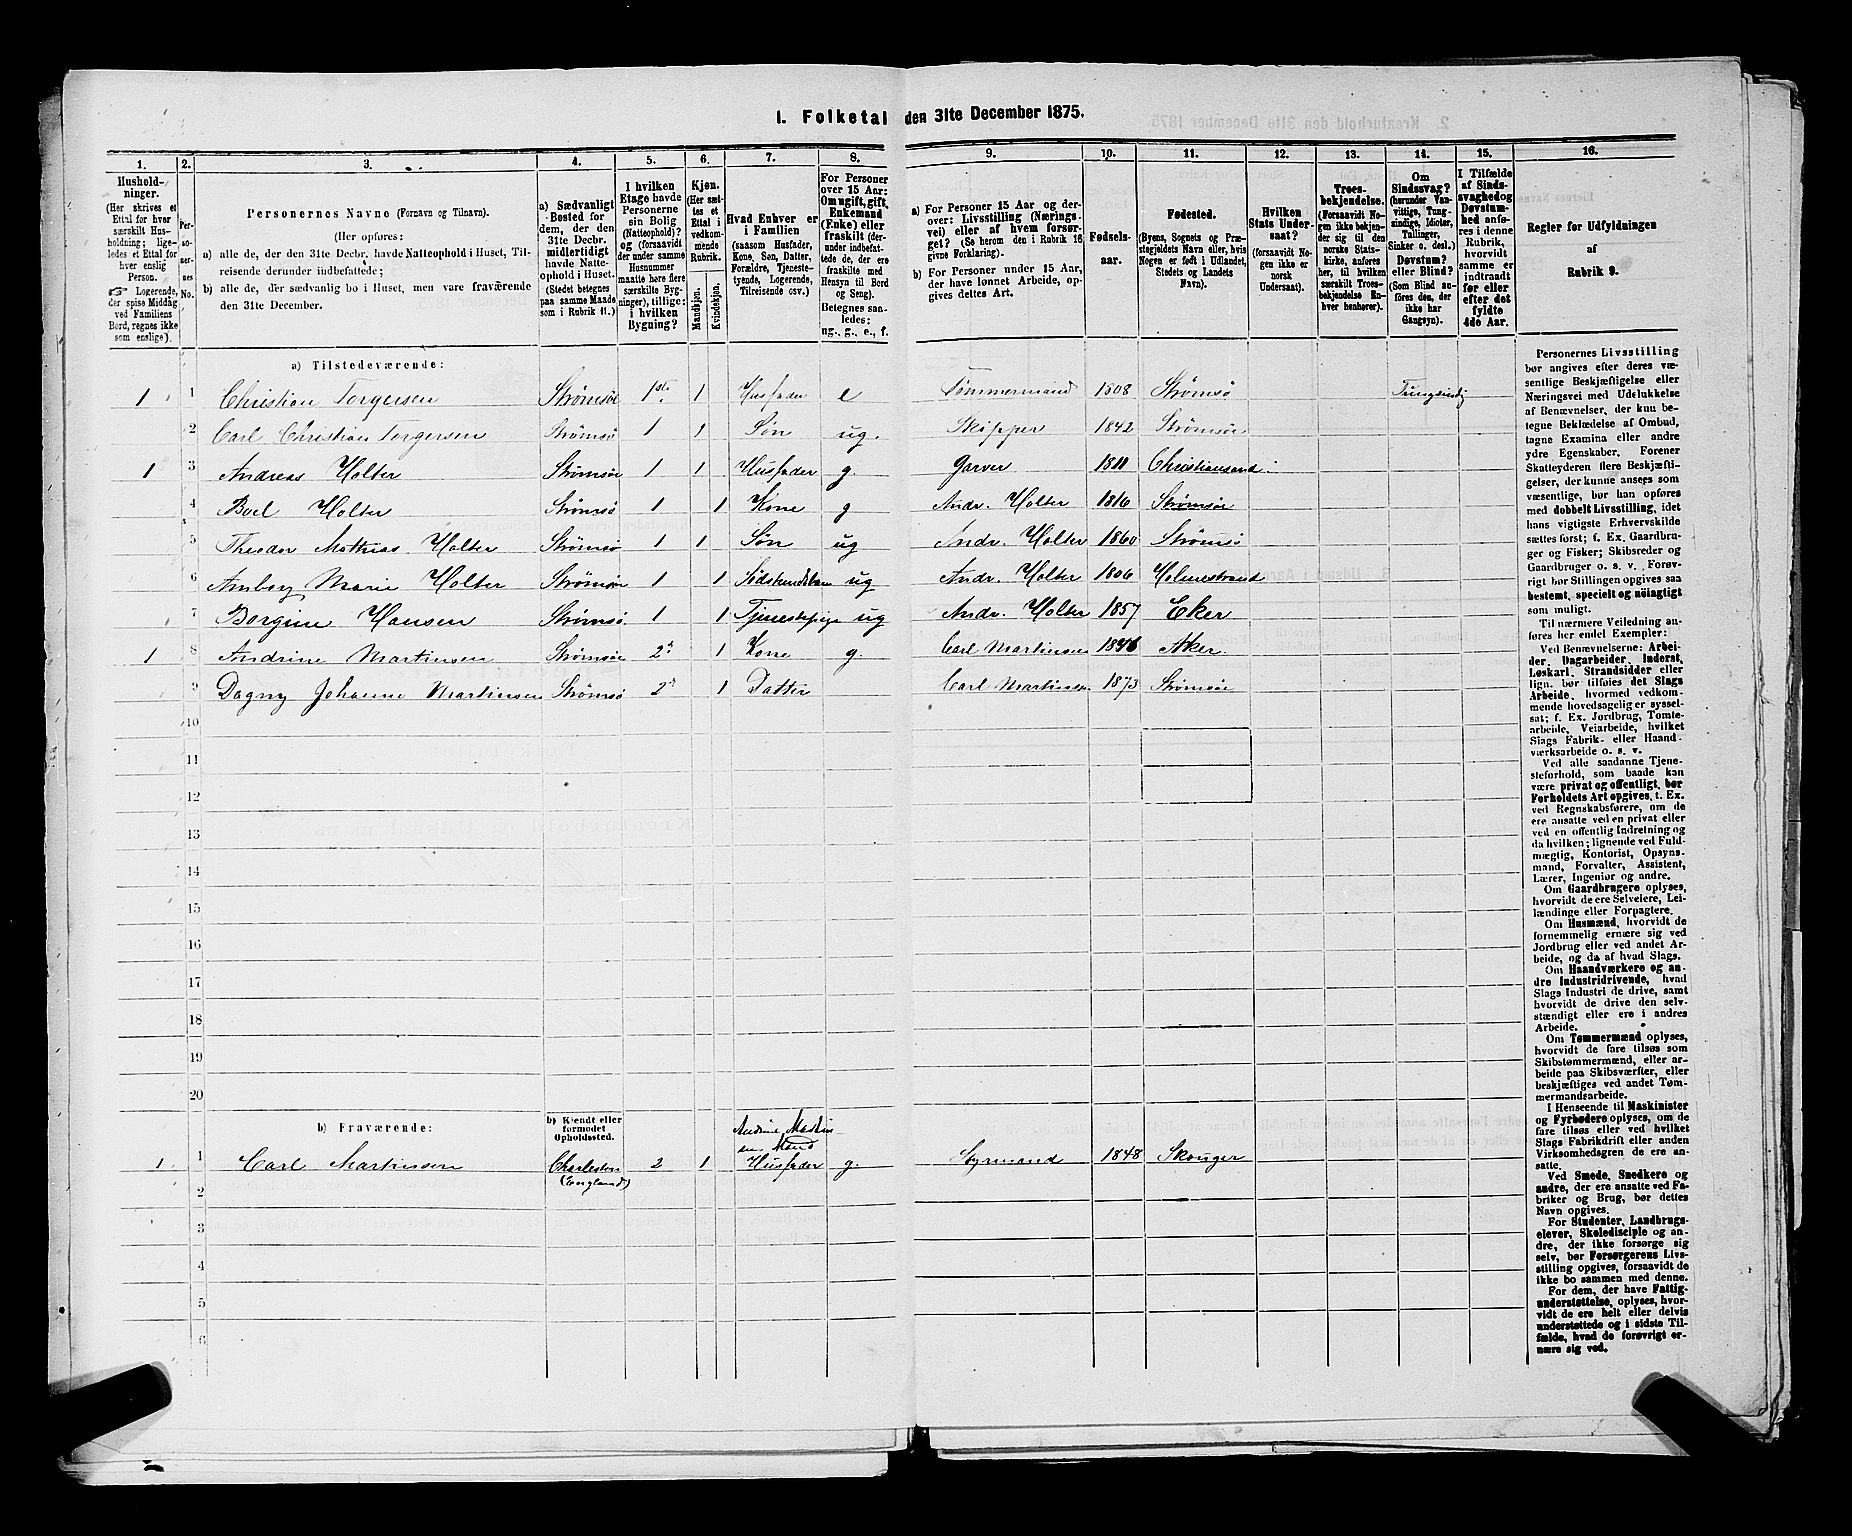 I. Folketal den 31te December 1875.
1. 2. 3. 4. 5. 6. 7. 8. 9. 10. 11. 12. 13. 14. 15. 16.
Husholdninger.
(Her skrives et
Ettal for hver
særskilt Husholdning;
ligeledes et Ettal for
hver enslig
Person.
Logerende,
der spise Middag
ved Familiens
Bord, regnes ikke
som enslige).
Personernes No.
Personernes Navne (Fornavn og Tilnavn).
(Her opføres:
a) alle de, der den 31te Decbr. havde Natteophold i Huset, Tilreisende derunder indbefattede;
b) alle de, der sædvanlig bo i Huset, men vare fraværende
den 31te December.
a) Sædvanligt
Bosted for
dem, der den
31te Decbr.
midlertidigt
havde Natteophold i Huset.
(Stedet betegnes
paa samme Maade
som i Rubrik 11.)
I hvilken
Etage havde
Personerne
sin Bolig
(Natteophold)?
og (forsaavidt
der under samme
Husnummer
maatte høre flere
særskilte Bygninger), tillige:
i hvilken
Bygning?
Kjøn.
(Her sættes et
Ettal i
vedkommende
Rubrik.
Mandkjøn.
Kvindekjøn.
Hvad Enhver er
i Familien
(saasom Husfader,
Kone, Søn, Datter,
Forældre, Tjenestetyende, Logerende,
Tilreisende osv.)
For Personer
over 15 Aar:
Om ugift, gift,
Enkemand
(Enke) eller
fraskilt (derunder indbefattede de, der ere
fraskilte med
Hensyn til Bord
og Seng).
Betegnes saaledes:
ug., g., e., f.
a) For Personer 15 Aar og derover: Livsstilling (Næringsvei) eller af hvem forsørget? (Se herom den i Rubrik 16
givne Forklaring).
b) For Personer under 15 Aar,
der have lønnet Arbeide, opgives dettes Art.
Fødselsaar.
Fødested.
(Byens, Sognets og Præstegjeldets Navn eller, hvis
Nogen er født i Udlandet,
Stedets og Landets
Navn).
Hvilken
Stats Undersaat?
(forsaavidt Nogen ikke er
norsk
Undersaat).
Troesbekjendelse.
(Forsaavidt Nogen ikke bekjender sig til den
norske Statskirke, anføres
her, til hvilken
særskilt Troesbekjendelse Enhver henhører).
Om
Sindssvag?
(herunder Vanvittige, Tungsindige, Idioter,
Tullinger,
Sinker o. desl.)
Døvstum?
eller Blind?
(Som Blind anføres den, der
ikke har
Gangsyn).
I Tilfælde
af Sindssvaghed og
Døvstumhed anføres i denne
Rubrik,
hvorvidt
samme er
indtraadt
før eller
efter det
fyldte
4de Aar.
Regler for Udfyldningen
af
Rubrik 9.
a) Tilstedeværende:
1 1 Christian Torgersen Strømsø 1st. 1 Husfader e Tømmermand 1808 Strømsø Tungsindig
2 Carl Christian Torgersen Strømsø 1 1 Søn ug. Skipper 1842 Strømsø
1 3 Andreas Holter Strømsø 1 1 Husfader g. Garver 1811 Christiansand
4 Boel Holter Strømsø 1 1 Kone g Andr. Holter 1816 Strømsø
5 Theodor Mathias Holter Strømsø 1 1 Søn ug Andr. Holter 1860 Strømsø
6 Marie Holter Strømsø 1 1 ug Andr. Holter 1806 Holmestrand
7 Borgine Hansen Strømsø 1 1 Tjenestepige ug Andr. Holter 1857 Eker
1 8 Andrine Martinsen Strømsø 2 1 Kone g. Carl Martinsen 1846 Aker.
9 Dagny Johanne Martinsen Strømsø 2 1 Datter Carl Martinsen 1873 Strømsø
10
11
12
13
14
15
16
17
18
19
20
b) Fraværende:
b) Kjendt eller
formodet
Opholdssted.
Andrine Martinsens Mand
1 1 Carl Martinsen Charleston 2 1 Husfader g. Styrmand 1848 Skouger
(England)
2
3
4
5
6
Personernes Livsstilling
bør angives efter deres væsentlige Beskjæftigelse eller
Næringsvei med Udelukkelse
af Benævnelser, der kun betegne Beklædelse af Ombud,
tagne Examina eller andre
ydre Egenskaber. Forener
Skatteyderen flere Beskjæftigelser, der kunne ansees som
væsentlige, bør han opføres
med dobbelt Livsstilling, idet
hans vigtigste Erhvervskilde
sættes først; f. Ex. Gaardbruger og Fisker; Skibsreder og
Gaardbruger o. s. v. Forøvrigt bør Stillingen opgives saa
bestemt, specielt og nøiagtigt
som muligt.
Til nærmere Veiledning anføres her endel Exempler:
Ved Benævnelserne: Arbeider, Dagarbeider, Inderst,
Løskarl, Strandsidder eller
lign. bør tilføies det Slags
Arbeide, hvormed vedkommende hovedsagelig er sysselsat; f. Ex. Jordbrug, Tomtearbeide, Veiarbeide, hvilket
Slags Fabrik- eller Haandværksarbeide o. s. v.
Ved alle saadanne Tjenesteforhold, som baade kan
være privat og offentligt, bør
Forholdets Art opgives, t. Ex.
ved Regnskabsførere, om de
ere ansatte ved en privat eller
ved en offentlig Indretning og
da hvilken; lignende ved Fuldmægtig, Kontorist, Opsynsmand, Forvalter, Assistent,
Lærer, Ingeniør og andre.
Om Gaardbrugere oplyses,
hvorvidt de ere Selveiere, Leilændinge eller Forpagtere.
Om Husmænd, hvorvidt de
fornemmelig ernære sig ved
Jordbrug eller ved andet Arbeide, og da af hvad Slags.
Om Haandværkere og andre Industridrivende, hvad
Slags Industri de drive, samt
hvorvidt de drive den selvstændigt eller ere i andres
Arbeide.
Om Tømmermænd oplyses,
hvorvidt de fare tilsøs som
Skibstømmermænd, eller arbeide paa Skibsværfter, eller
beskjæftiges ved andet Tømmermandsarbeide.
I Henseende til Maskinister
og Fyrbødere oplyses, om de
fare tilsøs eller ved hvilket
Slags Fabrikdrift eller anden
Virksomhedsgren de ere ansatte.
Ved Smede, Snedkere og
andre, der ere ansatte ved Fabriker og Brug, bør dettes
Navn opgives.
For Studenter, Landbrugselever, Skoledisciple og andre, der ikke forsørge sig
selv, bør Forsørgerens Livsstilling opgives, forsaavidt de
ikke bo sammen med denne.
For dem, der have Fattigunderstøttelse, oplyses, hvorvidt de ere helt eller delvis
understøttede og i sidste Tilfælde, hvad de forøvrigt ernære sig ved.